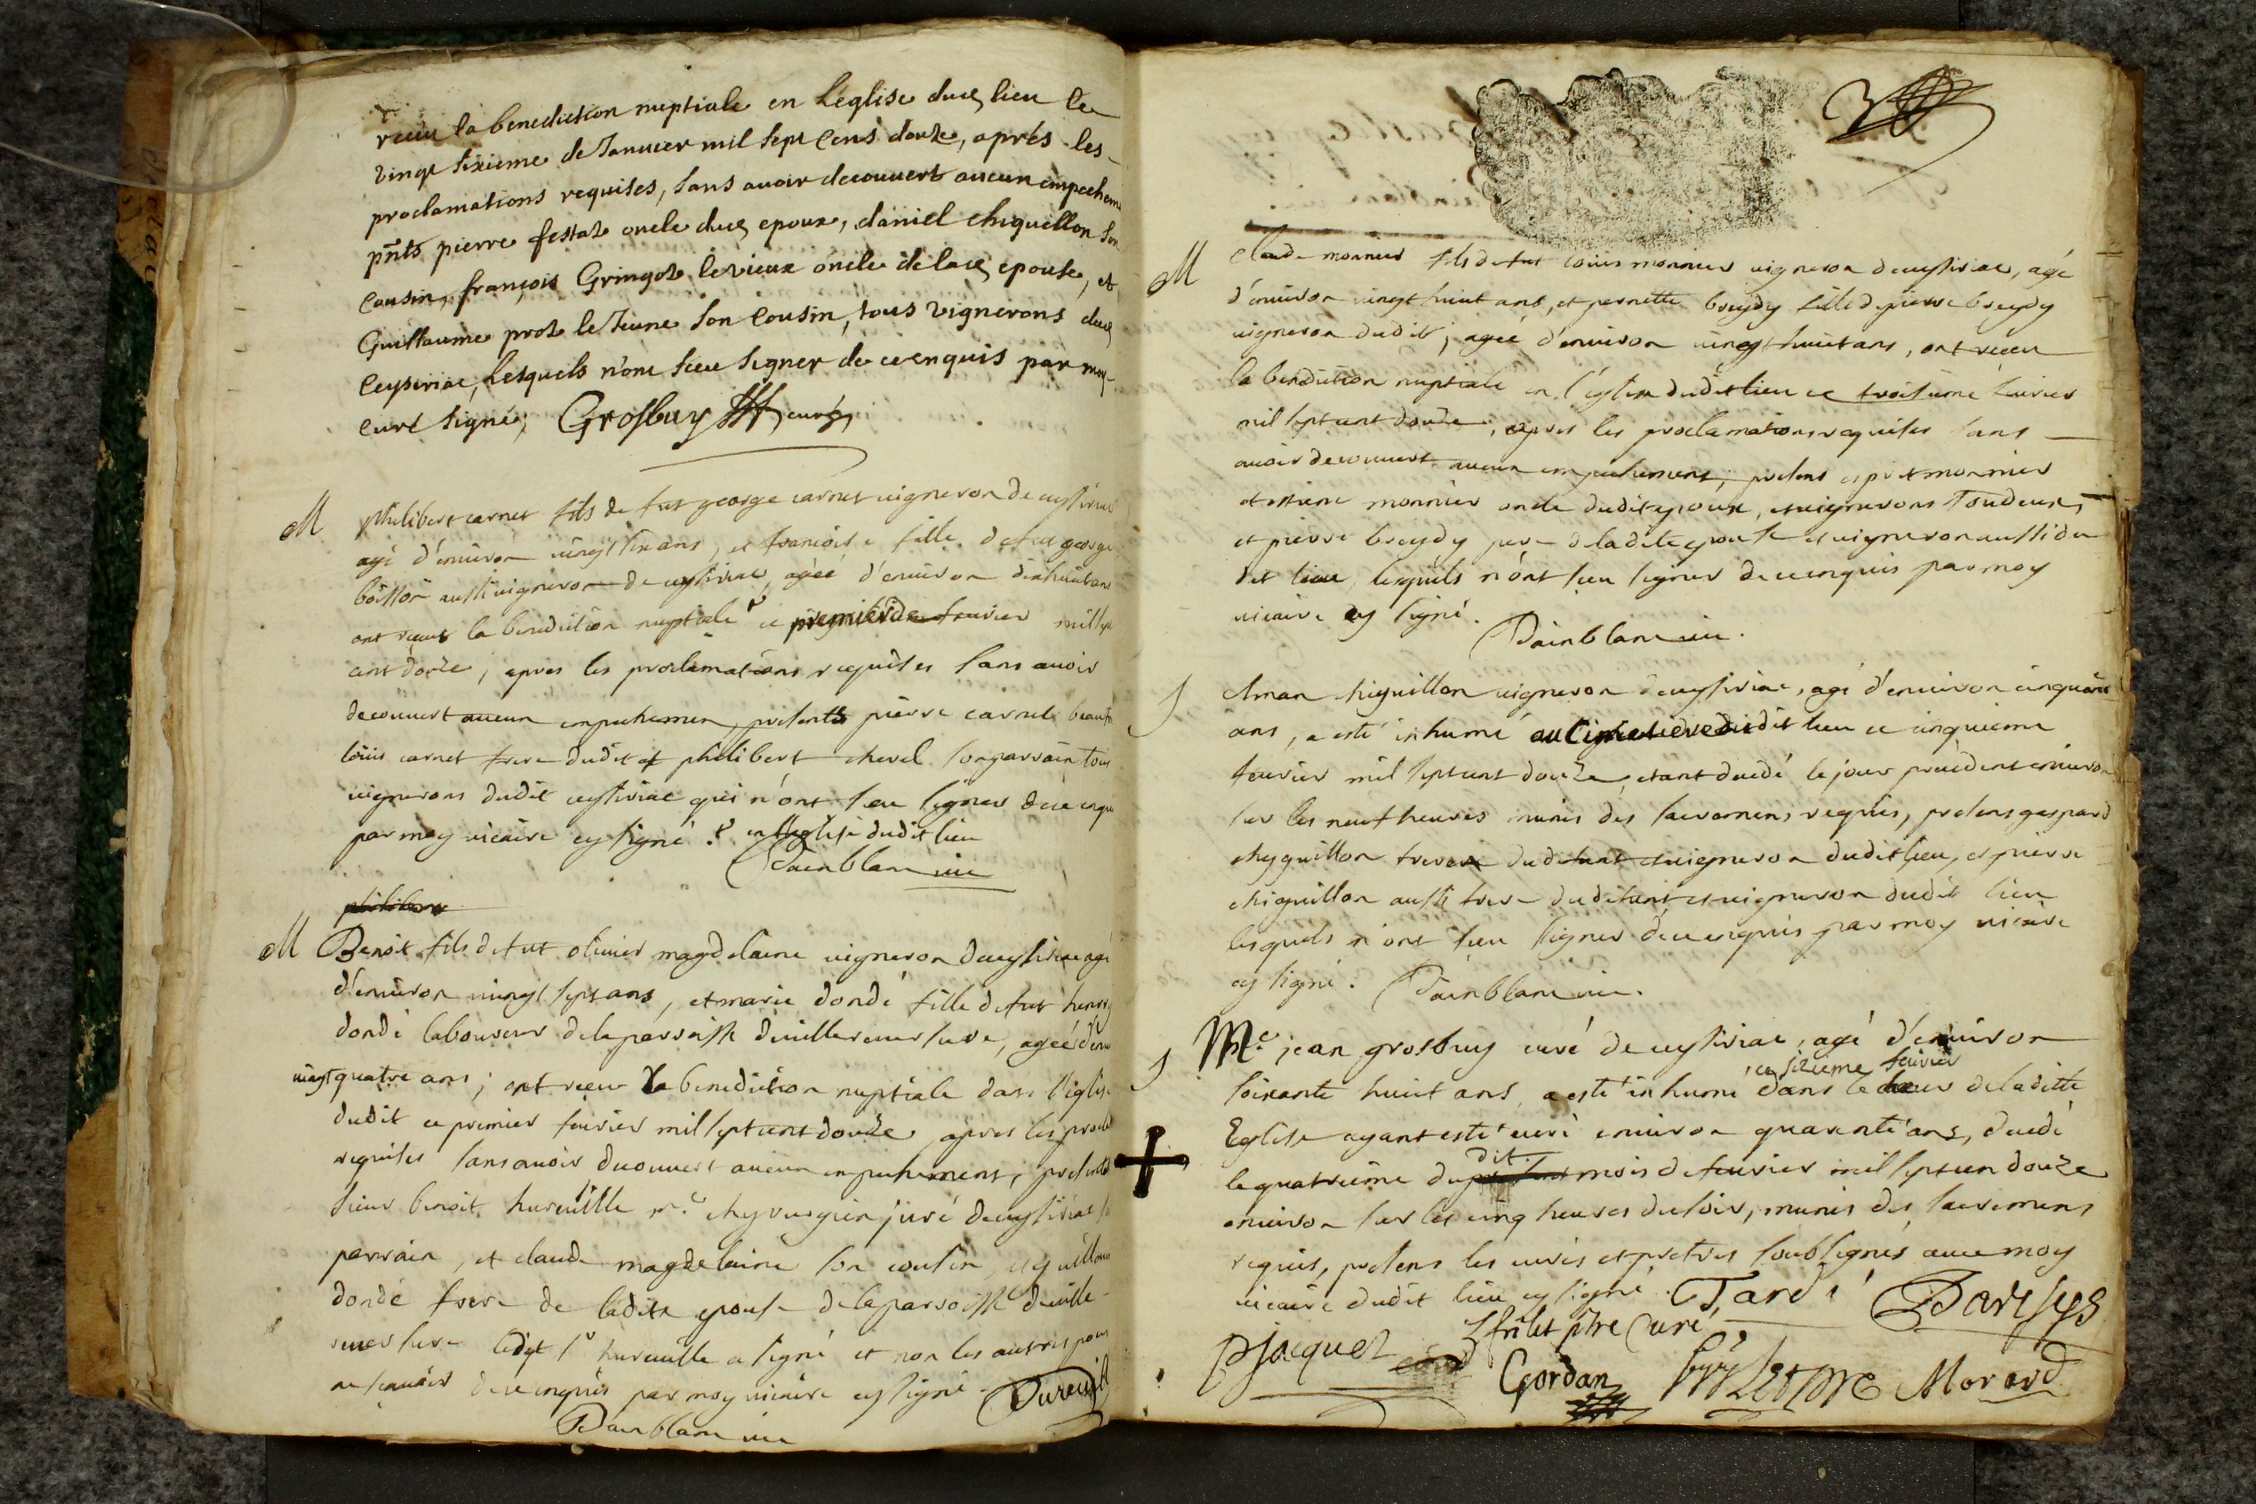 receu la benediction nuptiale en L'eglise dud lieu le
vingt sixieme de Januier mil sept cens douze, aprés les
proclamations requises, sans auoir decouuert aucun empechem
pnts pierre festaz oncle dud epoux, daniel chiquillon son
Cousin, françois Gringoz le vieux oncle de lad epouse, et
Guillaume proz le Jeune son Cousin, tous vignerons dud
Ceyseriac, Lesquels n'ont sceu signer de ce enquis par moy
curé signé; Grosbuy curé
M philibert carnet fils de fut george carnet uigneron de ceysiriac
agé d'enuiron uingt six ans, et francoise fille de fut george
boisson aussi uigneron de ceysiriac, agéé d'enuiron dixhuit ans
ont receus la benediction nuptiale ce premier de feurier mil sept
cent douze, apres les proclamations requises sans auoir
decouuert aucun empechemen, presents pierre carnet beaufr
löuis carnet frere dudit et philibert cheuel son parrain tous
uignerons dudit ceysiriac qui n'ont sceu signer de ce enqu
par moy uicaire cy signé. en lleglise dudit lieu
Painblanc uic
philibert
M Benoit fils de fut oliuier magdelaine uigneron de ceysiriac agé
d'enuiron uingt sept ans, et marie dondé fille de fut henry
dondé laboureur de la parroisse de uillereuersure, agéé d'enu
uingt quatre ans; ont receu la benediction nuptiale dans l'eglise
dudit ce premier feurier mil sept cent douze apres les procla
requises sans auoir decouuert aucun empechement, presents
sieur benoit hureuille me chyrurgien juré de ceysiriac so
parrain, et claude magdelaine son cousin, et guillaume
dondé frere de ladite epouse de la parroisse de uille-
reuersure ledit sr hureuille a signé et non les autres pour
ne scauoir de ce enquis par moy uicaire cy signé. Dureuille
Painblanc uic
M Claude monnier fils de fut löuis monnier uigneron de ceysiriac, agé
d'enuiron uingt huit ans, et pernette breydy fille de pierre breydy
uigneron dudit, ageé d'enuiron uingt huit ans, ont receu
la benediction nuptiale en l'eglise dudit lieu ce troisieme feurier
mil sept cent douze, apres les proclamations requises sans
auoir decouuert aucun empechement, presens esprit monnier
et estiene monnier oncle dudit epoux, et uignerons tous deux,
et pierre breydy pere de ladite epouse et uigneron aussi du
dit lieu, lesquels n'ont sceu signer de ce enquis par moy
uicaire cy signé.
Painblanc uic.
J Aman chiquillon uigneron de ceysiriac, agé d'enuiron cinquante
ans, a esté inhumé au cimetiere dudit lieu ce cinquieme
feurier mil sept cent douze, etant decedé le jour precedent enuiron
sur les neuf heures munis des sacremens requis, presens gaspard
chyquillon frere du defunt et uigneron dudit lieu, et pierre
chiquillon aussi frere du defunt et uigneron dudit lieu
lesquels n'ont sceu signer de ce enquis par moy uicaire
cy signé. Painblanc uic.
J Me jean grosbuy curé de ceysiriac, agé d'enuiron
ce sizieme feurier
soixante huit ans, a esté inhumé dans le cheur de la ditte
Eglise ayant esté curé enuiron quarante ans, decedé
dit
le quatrieme du present mois de feurier mil sept cen douze
enuiron sur les cinq heures du soir, munis des sacremens
requis, presens les curés et pretres soubsignés auec moy
uicaire dudit lieu cy signé. Tardi Darisys
Pjacquet curé frilet ptre curé
Gordan frilet ptre Morard